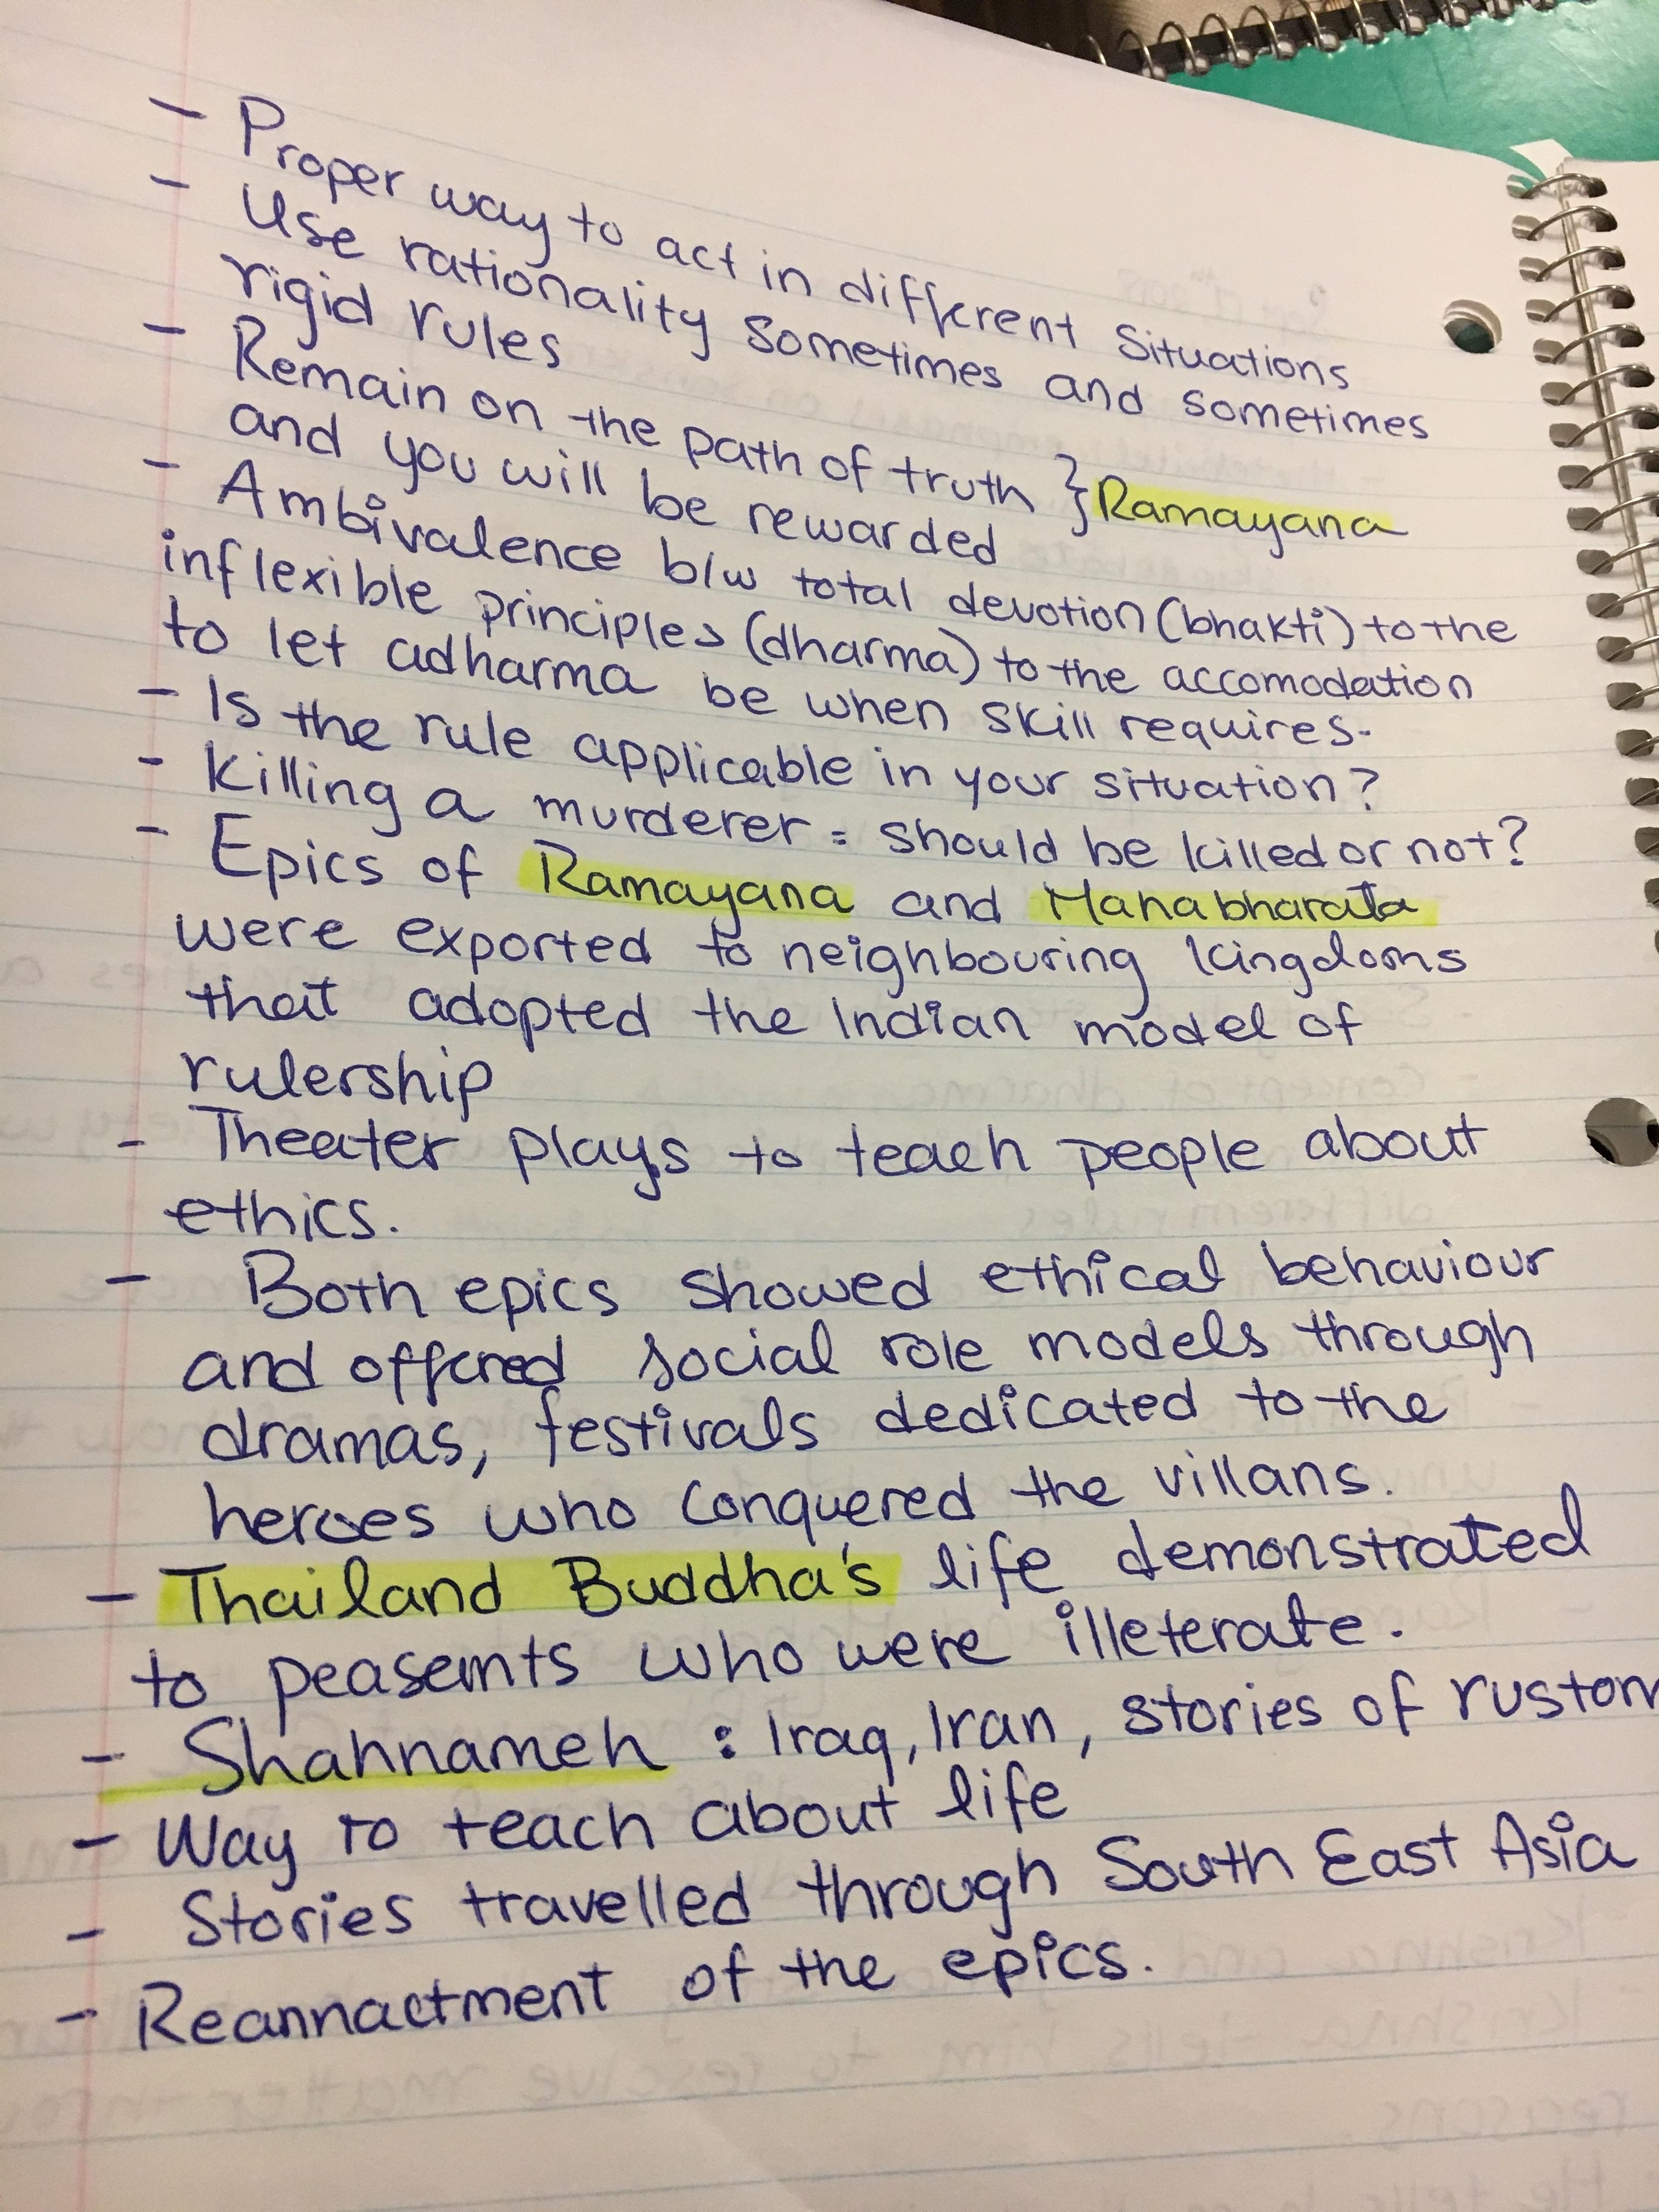 - Proper way to act in different situations
- Use rationality sometimes and sometimes
rigid rules
- Remain on the path of truth } Ramayana
and you will be rewarded
- Ambivalence b/w total devotion (bhakti) to the
inflexible principles (dharma) to the accomodation
to let adharma be when skill requires.
- Is the rule applicable in your situation?
- Killing a murderer = should be killed or not?
- Epics of Ramayana and Mahabharata
were exported to neighbouring kingdoms
that adopted the Indian model of
rulership
- Theater plays to teach people about
ethics.
- Both epics showed ethical behaviour
and offered social role models through
dramas, festivals dedicated to the
heroes who conquered the villans.
- Thailand Buddha's life demonstrated
to peasents who were illeterate.
- Shahnameh : Iraq, Iran, stories of rustom
- Way to teach about life
- Stories travelled through South East Asia
- Reannactment of the epics.